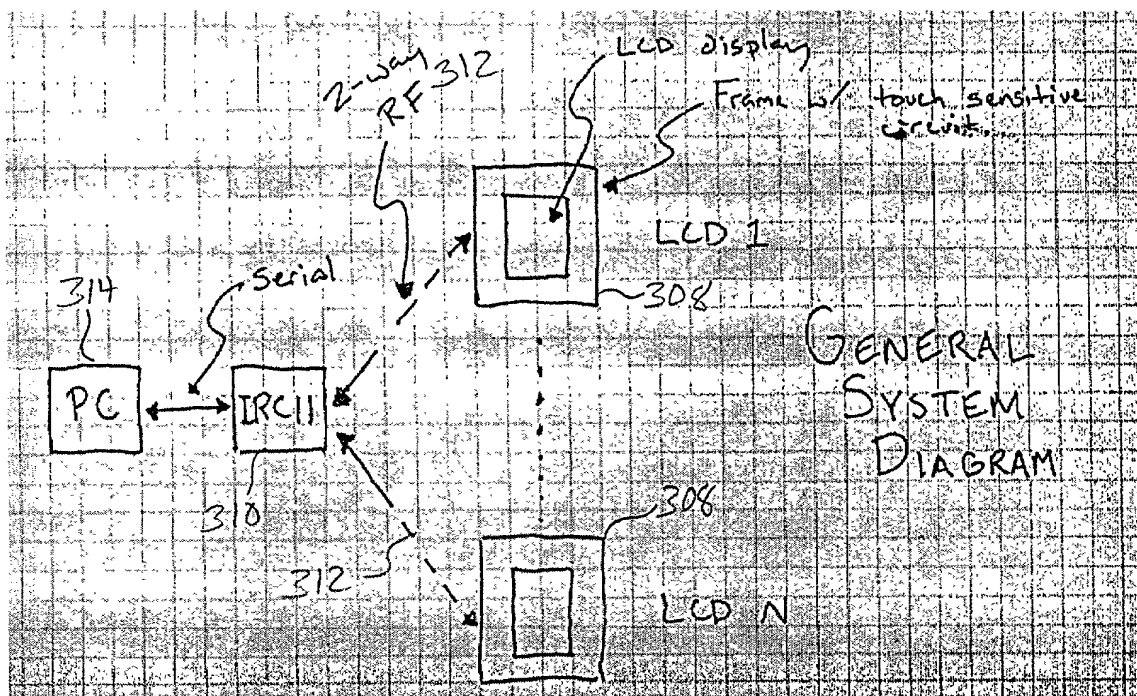 2-way
RF 312
LCD display
Frame w/ touch sensitive
circuit...
LCD 1
308
314
serial
PC
IRC11
310
312
GENERAL
SYSTEM
DIAGRAM
308
LCD N